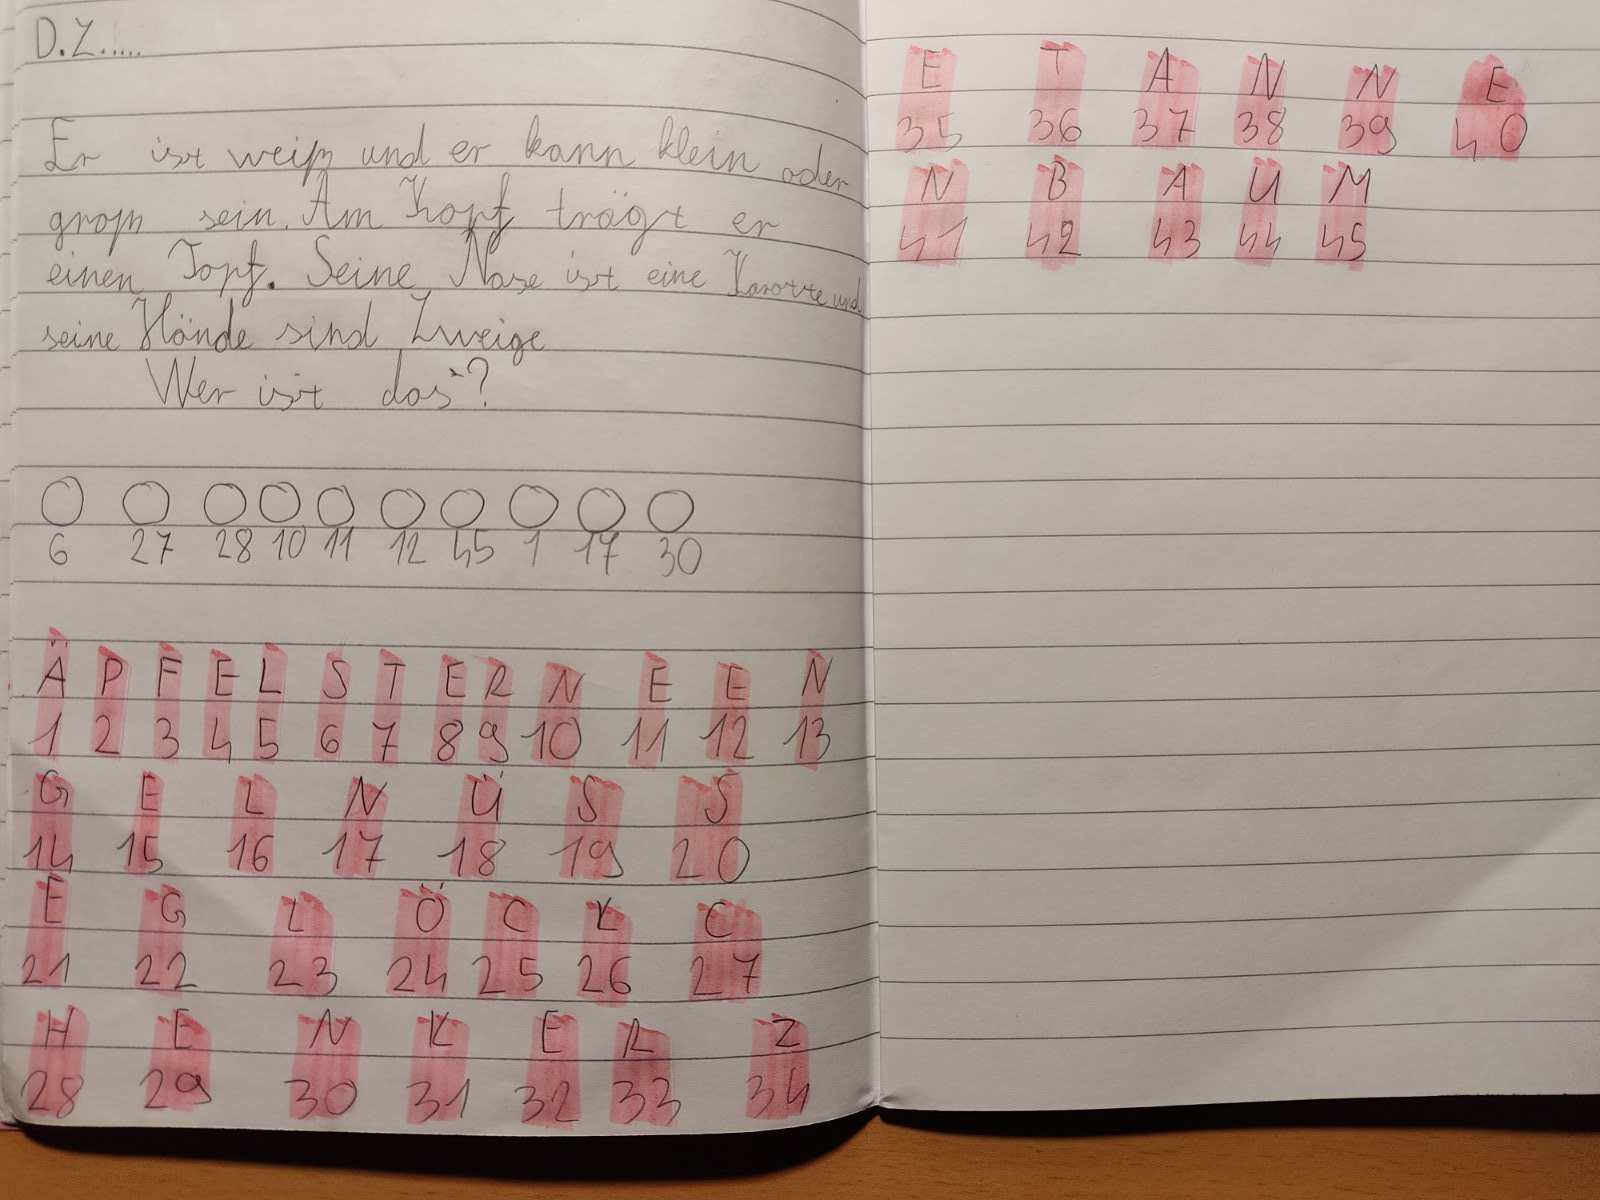 D.Z.....
Er ist weiß und er kann klein oder
groß sein. Am Kopf trägt er
einen Topf. Seine Nase ist eine Karotte und
seine Hände sind Zweige
Wer ist das?
6 27 28 10 11 12 45 1 17 30
Ä P F E L S T E R N E E N
1 2 3 4 5 6 7 8 9 10 11 12 13
G E L N Ü S S
14 15 16 17 18 19 20
E G L Ö C K C
21 22 23 24 25 26 27
H E N K E R Z
28 29 30 31 32 33 34
E T A N N E
35 36 37 38 39 40
N B A U M
41 42 43 44 45